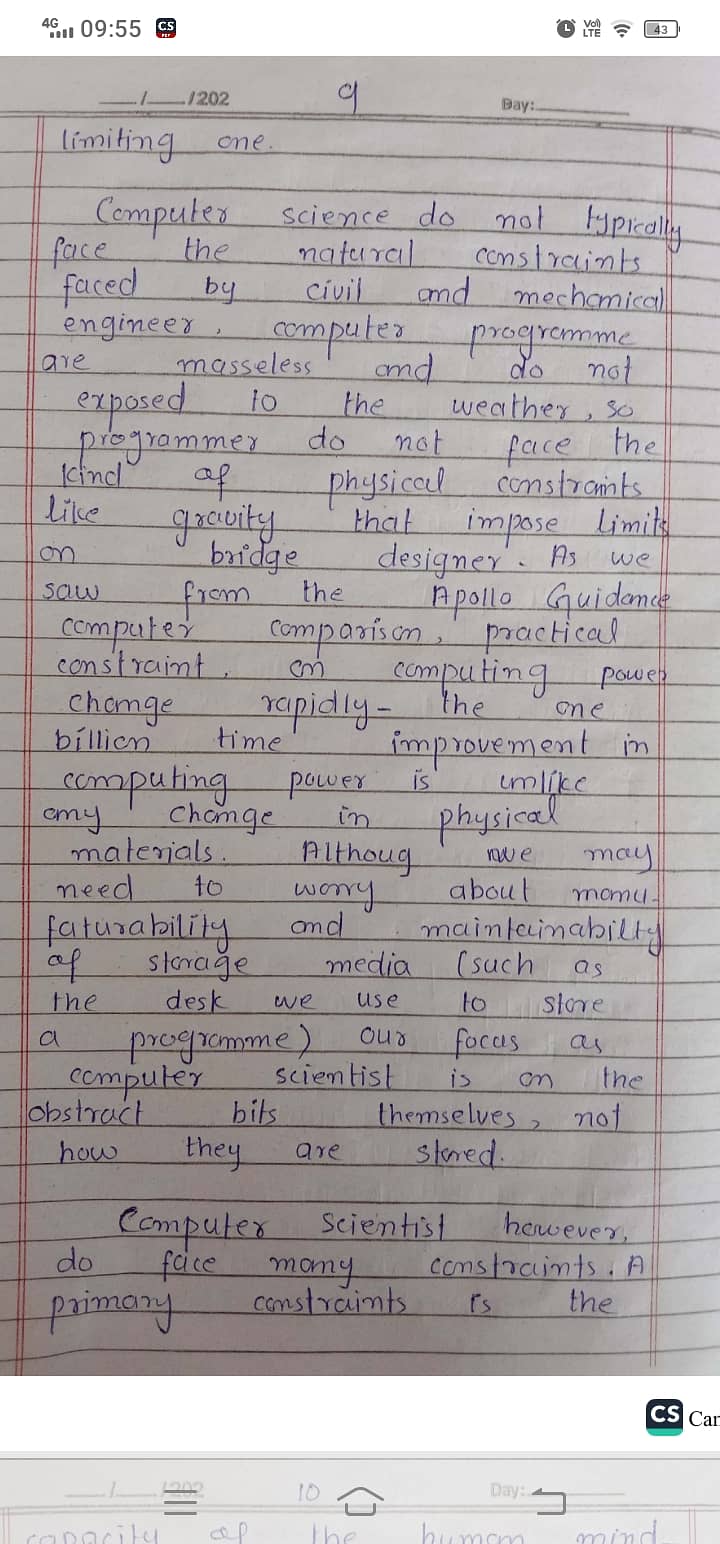 4G 09:55 CS PDF Vo) LTE 43
__/__/202 9 Day:
limiting one.
Computer science do not typically
face the natural constraints
faced by civil and mechanical
engineer, computer programme
are masseless and do not
exposed to the weather, so
programmer do not face the
kind of physical constraints
like gravity that impose limits
on bridge designer. As we
saw from the Apollo Guidance
computer comparison, practical
constraint, on computing power
change rapidly- the one
billion time improvement in
computing power is unlike
any change in physical
materials. Althoug we may
need to worry about manu-
faturability and maintainabilty
of storage media (such as
the desk we use to store
a programme) our focus as
computer scientist is on the
obstract bits themselves, not
how they are stored.
Computer Scientist however,
do face many constraints. A
primary constraints is the
CS Car
__/__/202 10 Day:
capacity of the human mind